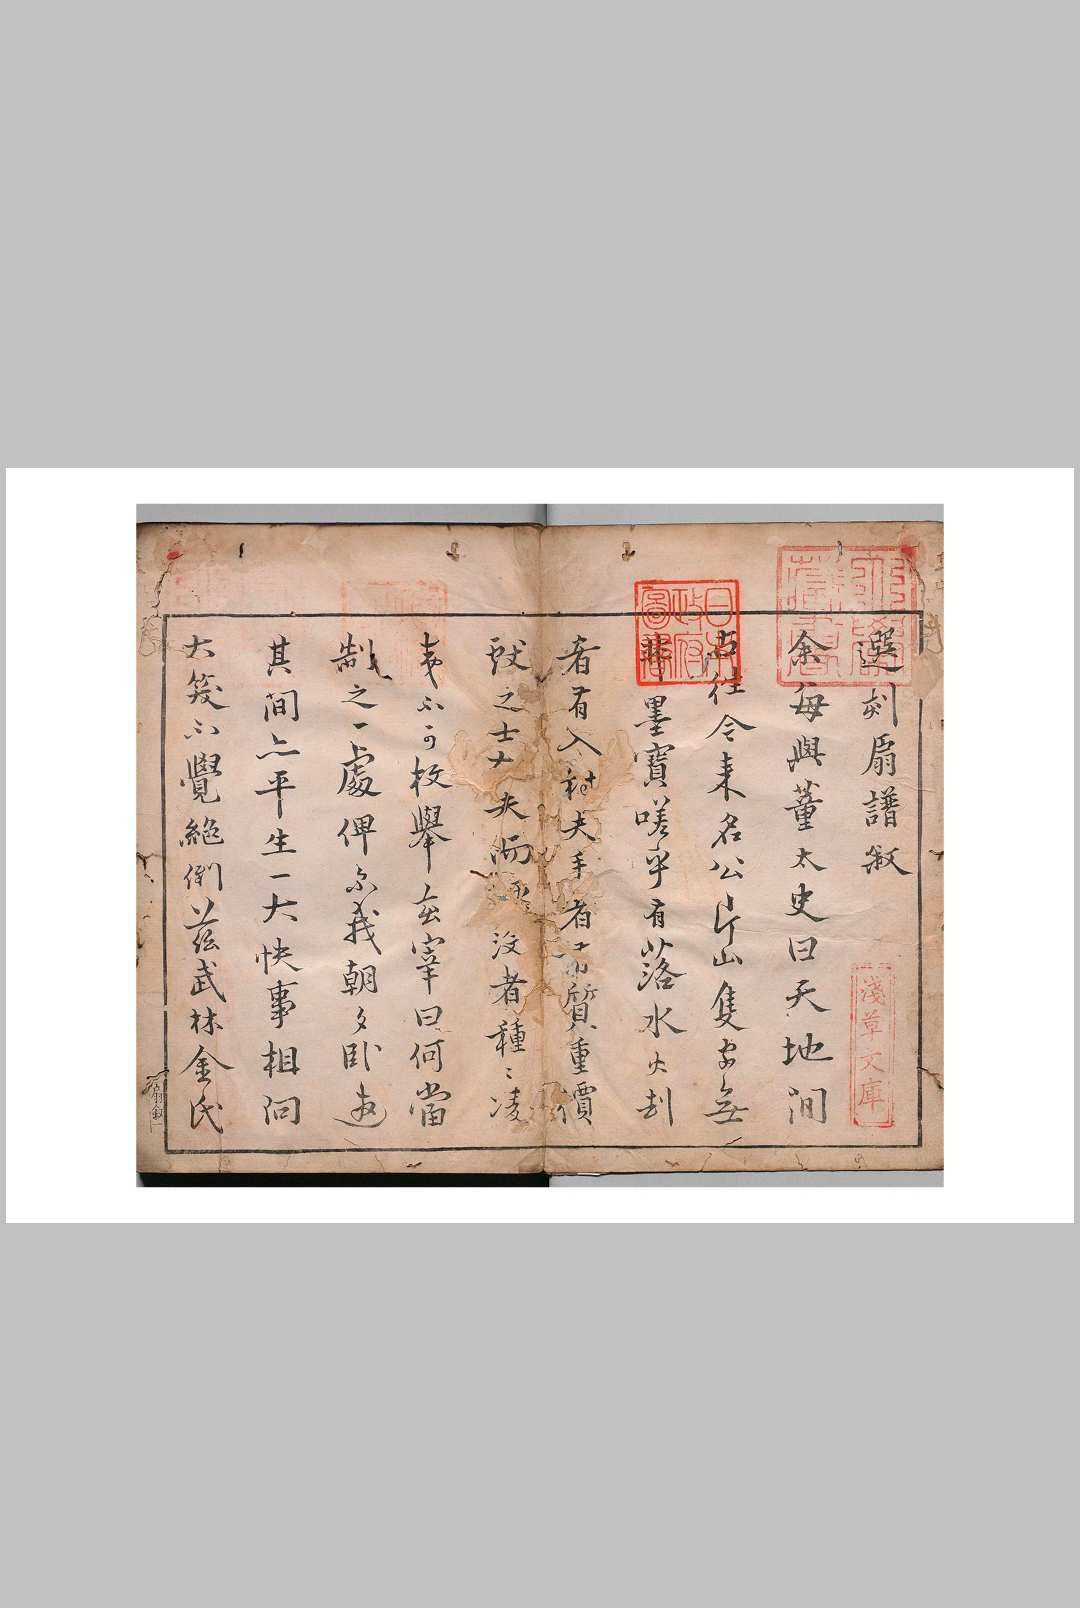 選刻扇譜敘
余每與董太史曰天地間
古往今來名公片山隻字無
非墨寶嗟乎有落水火刦
者有入村夫手者 質重價
之士大夫而 沒者種〻凌
夷不可枚舉玄宰曰何當
制之一處俾尔我朝夕臥遊
其間亦平生一大快事相向
大笑不覺絕倒茲武林金氏
日本
政府
圖書
淺草文庫
扇敘一